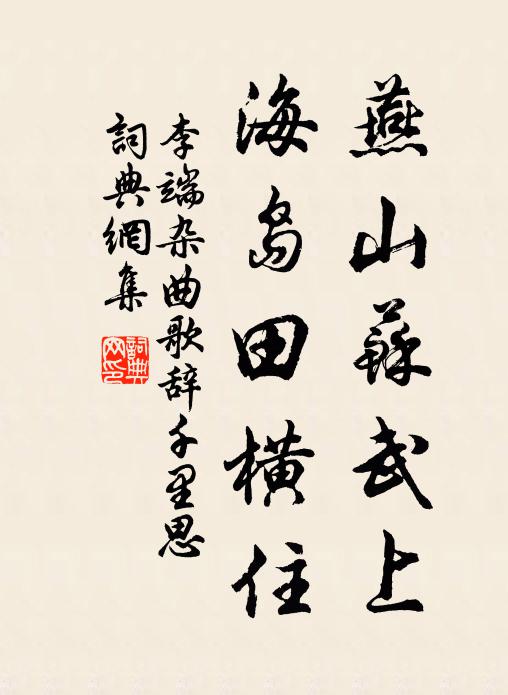 燕山蘇武上
海島田橫住
李端杂曲歌辞千里思
詞典網集
詞典網印